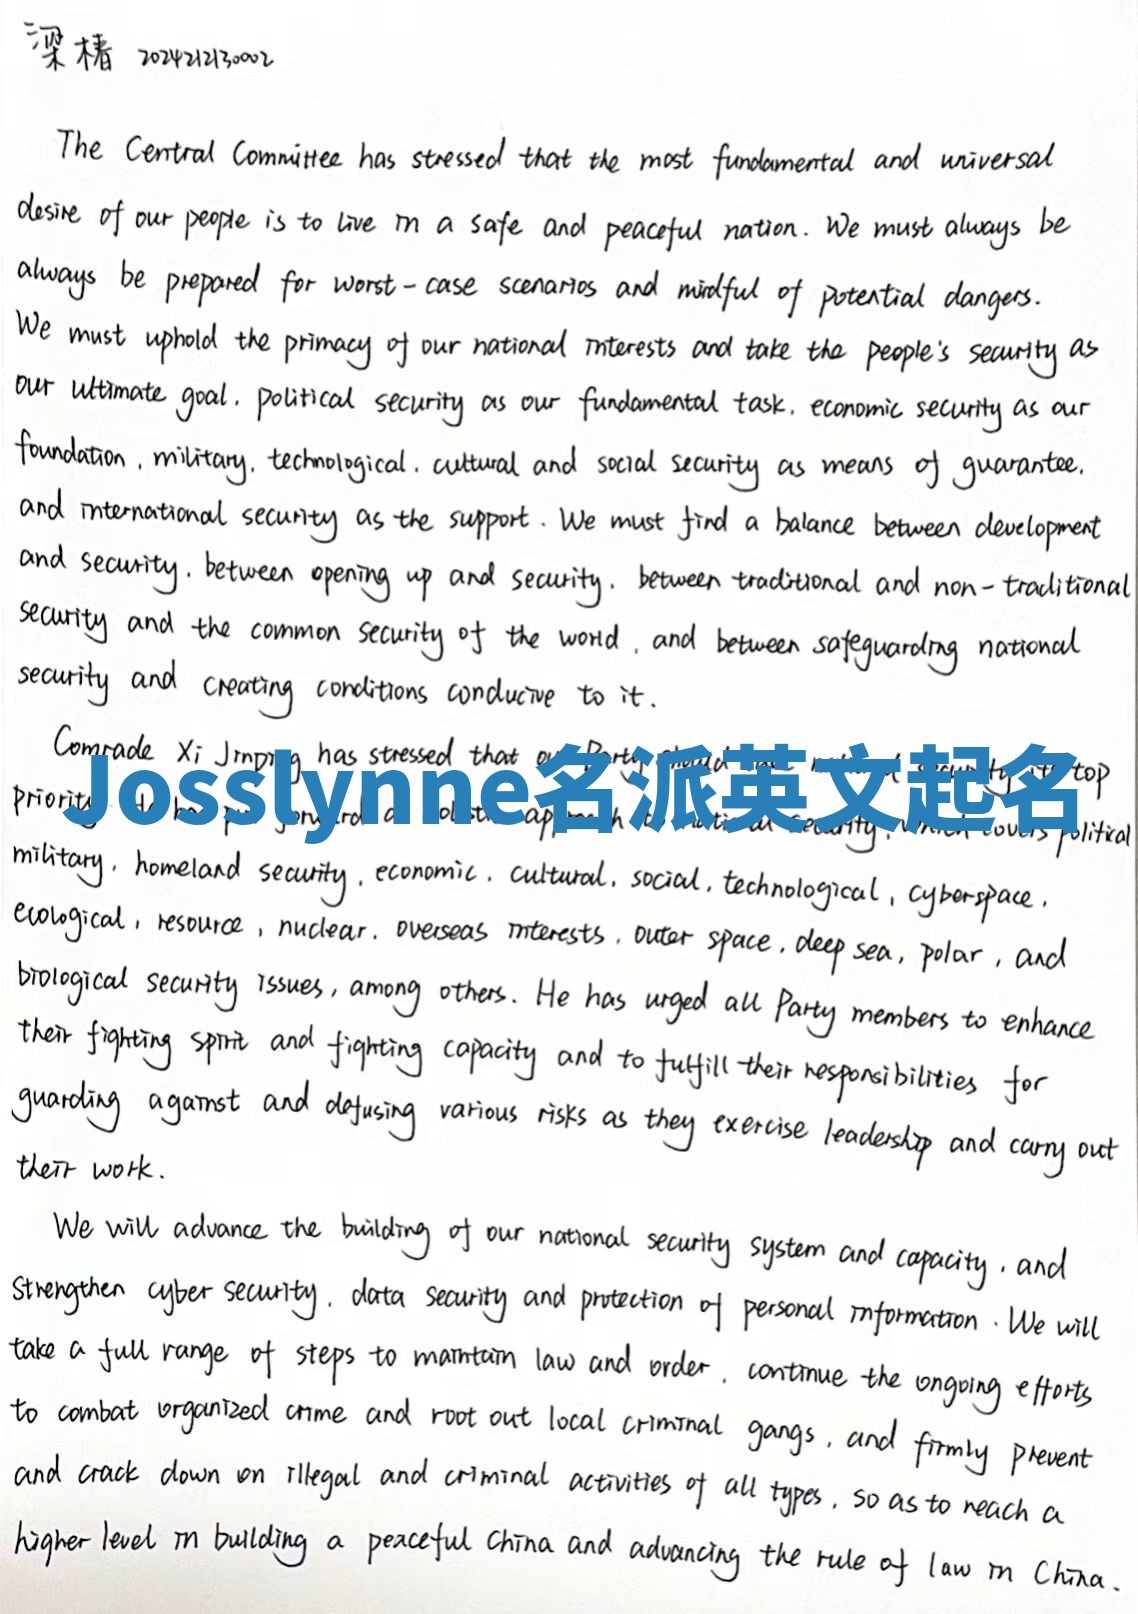 梁椿 2024212130002
The Central Committee has stressed that the most fundamental and universal
desire of our people is to live in a safe and peaceful nation. We must always be
always be prepared for worst-case scenarios and mindful of potential dangers.
We must uphold the primacy of our national interests and take the people's security as
our ultimate goal, political security as our fundamental task, economic security as our
foundation, military, technological, cultural and social security as means of guarantee,
and international security as the support. We must find a balance between development
and security, between opening up and security, between traditional and non-traditional
security and the common security of the world, and between safeguarding national
security and creating conditions conducive to it.
Comrade Xi Jinping has stressed that our Party should security its top
Josslynne名派英文起名
priority. He has put forward a holistic approach to national security, which covers political
military, homeland security, economic, cultural, social, technological, cyberspace,
ecological, resource, nuclear, overseas interests, outer space, deep sea, polar, and
biological security issues, among others. He has urged all Party members to enhance
their fighting spirit and fighting capacity and to fulfill their responsibilities for
guarding against and defusing various risks as they exercise leadership and carry out
their work.
We will advance the building of our national security system and capacity, and
strengthen cyber security, data security and protection of personal information. We will
take a full range of steps to maintain law and order, continue the ongoing efforts
to combat organized crime and root out local criminal gangs, and firmly prevent
and crack down on illegal and criminal activities of all types, so as to reach a
higher level in building a peaceful China and advancing the rule of law in China.